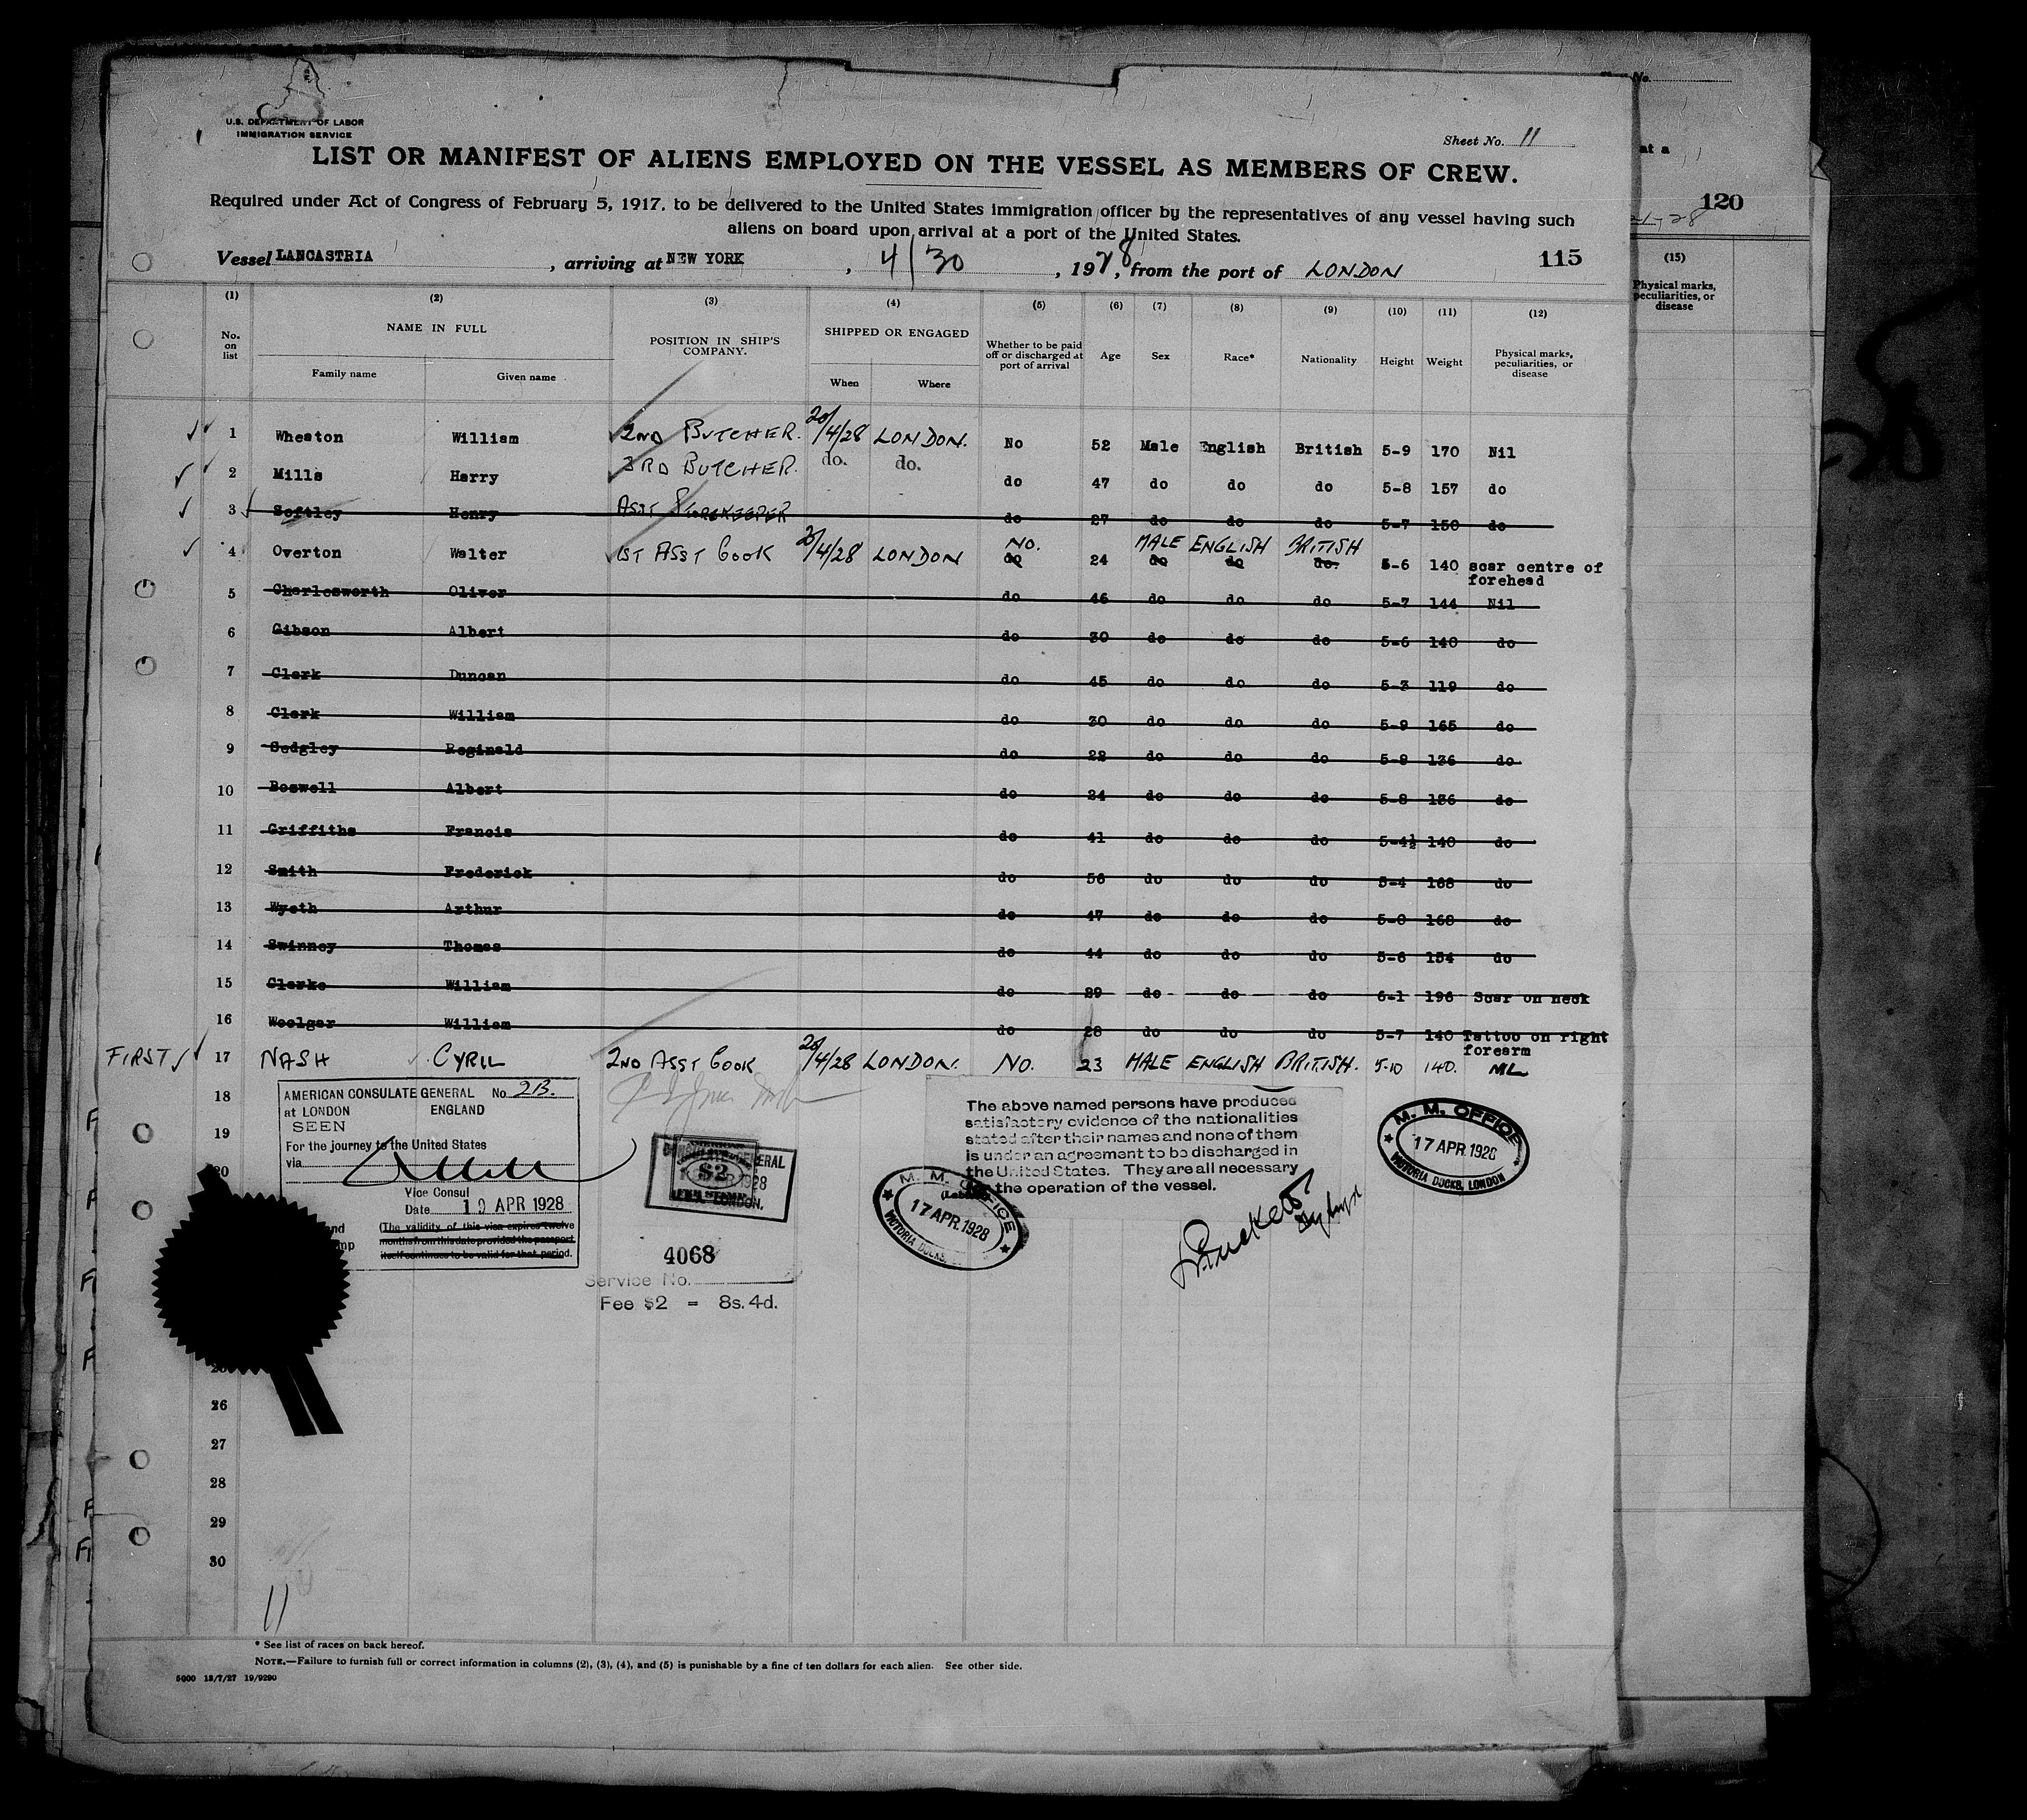 U.S. DEPARTMENT OF LABOR
IMMIGRATION SERVICE
Sheet No. 11
LIST OR MANIFEST OF ALIENS EMPLOYED ON THE VESSEL AS MEMBERS OF CREW.
Required under Act of Congress of February 5, 1917, to be delivered to the United States immigration officer by the representatives of any vessel having such
aliens on board upon arrival at a port of the United States.
Vessel LANCASTRIA, arriving at NEW YORK, 4/30, 1928, from the port of LONDON 115
(1) (2) (3) (4) (5) (6) (7) (8) (9) (10) (11) (12)
No. on list NAME IN FULL POSITION IN SHIP'S COMPANY. SHIPPED OR ENGAGED Whether to be paid off or discharged at port of arrival Age Sex Race* Nationality Height Weight Physical marks, peculiarities, or disease
Family name Given name When Where
1 Wheaton William 2ND BUTCHER. 20/4/28 LONDON. No 52 Male English British 5-9 170 Nil
2 Mills Harry 3RD BUTCHER. do. do. do 47 do do do 5-8 157 do
3 Softley Henry ASST STOREKEEPER do 27 do do do 5-7 150 do
NO. MALE ENGLISH BRITISH
4 Overton Walter 1ST ASST COOK 20/4/28 LONDON do 24 do do do. 5-6 140 scar centre of
forehead
5 Charlesworth Oliver do 46 do do do 5-7 144 Nil
6 Gibson Albert do 30 do do do 5-6 140 do
7 Clark Duncan do 45 do do do 5-3 119 do
8 Clark William do 30 do do do 5-9 165 do
9 Sedgley Reginald do 22 do do do 5-8 136 do
10 Boswell Albert do 24 do do do 5-8 136 do
11 Griffiths Francis do 41 do do do 5-4½ 140 do
12 Smith Frederick do 56 do do do 5-4 168 do
13 Wyeth Arthur do 47 do do do 168 do
14 Swinney Thomas do 44 do do do 5-6 154 do
15 Clarke William do 29 do do do 6-1 196 Scar on neck
16 Woolgar William do 28 do do do 5-7 140 Tattoo on right
forearm
FIRST 17 NASH CYRIL 2ND ASST COOK 20/4/28 LONDON. NO. 23 MALE ENGLISH BRITISH. 5-10 140.
18
19
20
AMERICAN CONSULATE GENERAL No 2B.
at LONDON ENGLAND
SEEN
For the journey to the United States
via
Vice Consul
Date 19 APR 1928
(The validity of this visa expires twelve
months from this date provided the passport
itself continues to be valid for that period.
$2
4068
Service No.
Fee $2 = 8s. 4d.
The above named persons have produced
satisfactory evidence of the nationalities
stated after their names and none of them
is under an agreement to be discharged in
the United States. They are all necessary
for the operation of the vessel.
M. M. OFFICE
17 APR. 1928
VICTORIA DOCKS,
M. M. OFFICE
17 APR. 1928
VICTORIA DOCKS, LONDON
26
27
28
29
30
11
* See list of races on back hereof.
NOTE.—Failure to furnish full or correct information in columns (2), (3), (4), and (5) is punishable by a fine of ten dollars for each alien. See other side.
5000 13/7/27 19/9290
at a
120
(15)
Physical marks,
peculiarities, or
disease